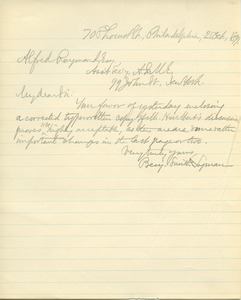 708 Locust St., Philadelphia, 2 Feb.,
Alfred Raymond, Esq.
Ass't Sec'y A.I.M.E.
99 John St., New York.
My dear Sir:
Your favor of yesterday enclosing
a corrected typewritten copy of Mr.
proves highly acceptable, as there are some rather
important changes in the last page or two.
Very truly yours,
Benj. Smith Lyman